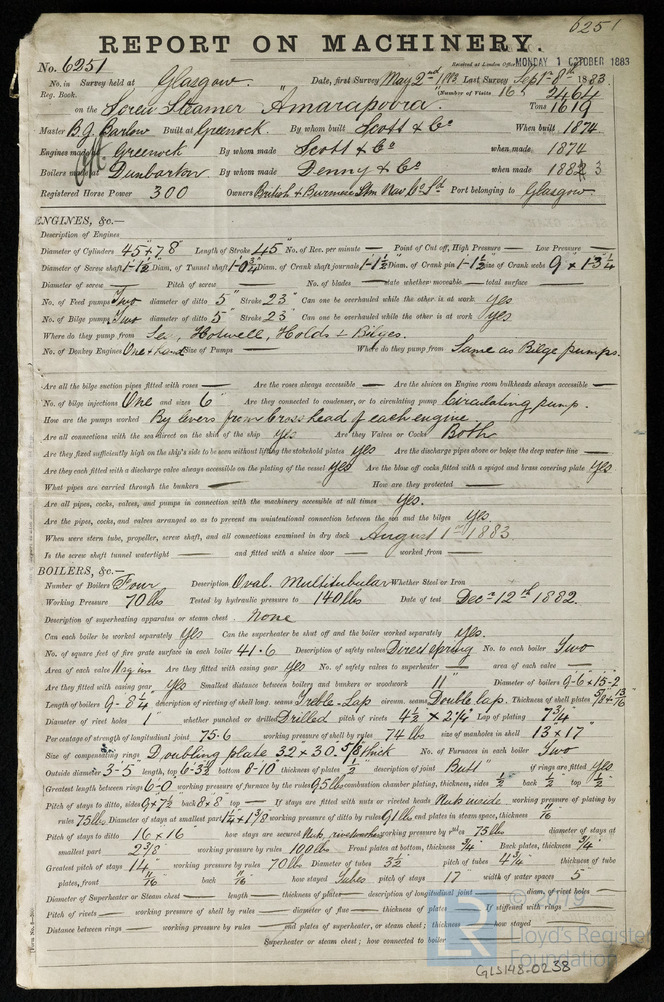 6251
REPORT ON MACHINERY.
No. 6251
Received at London Office MONDAY 1 OCTOBER 1883
No. in Survey held at Glasgow. Date, first Survey May 2nd 1883 Last Survey Sept 8th 1883.
Reg. Book. (Number of Visits 16) 2464
on the Screw Steamer "Amarapoora" Tons 1619
Master B.G. Barlow Built at Greenock. By whom built Scott & Co When built 1874
Engines made at Greenock By whom made Scott & Co when made 1874
Boilers made at Dunbarton By whom made Denny & Co when made 1882 3
Registered Horse Power 300 Owners British & Burmese Stm Nav Co Ld Port belonging to Glasgow.
ENGINES, &c.—
Description of Engines
Diameter of Cylinders 45" + 78" Length of Stroke 45" No. of Rev. per minute — Point of Cut off, High Pressure — Low Pressure —
Diameter of Screw shaft 1-1½" Diam. of Tunnel shaft 1-0¾" Diam. of Crank shaft journals 1-1½" Diam. of Crank pin 1-1½" size of Crank webs 9" x 1-3¼
Diameter of screw — Pitch of screw — No. of blades — state whether moveable — total surface —
No. of Feed pumps Two diameter of ditto 5" Stroke 23" Can one be overhauled while the other is at work yes
No. of Bilge pumps Two diameter of ditto 5" Stroke 23" Can one be overhauled while the other is at work yes
Where do they pump from Sea, Hotwell, Holds & Bilges.
No. of Donkey Engines One & hand Size of Pumps — Where do they pump from Same as Bilge pumps.
Are all the bilge suction pipes fitted with roses — Are the roses always accessible — Are the sluices on Engine room bulkheads always accessible —
No. of bilge injections One and sizes 6" Are they connected to condenser, or to circulating pump Circulating pump.
How are the pumps worked By levers from Crosshead of each engine
Are all connections with the sea direct on the skin of the ship yes Are they Valves or Cocks Both
Are they fixed sufficiently high on the ship's side to be seen without lifting the stokehold plates yes Are the discharge pipes above or below the deep water line —
Are they each fitted with a discharge valve always accessible on the plating of the vessel yes Are the blow off cocks fitted with a spigot and brass covering plate yes
What pipes are carried through the bunkers — How are they protected —
Are all pipes, cocks, valves, and pumps in connection with the machinery accessible at all times yes.
Are the pipes, cocks, and valves arranged so as to prevent an unintentional connection between the sea and the bilges yes
When were stern tube, propeller, screw shaft, and all connections examined in dry dock August 1st 1883
Is the screw shaft tunnel watertight — and fitted with a sluice door — worked from —
BOILERS, &c.—
Number of Boilers Four Description Oval. Multitubular Whether Steel or Iron
Working Pressure 70 lbs Tested by hydraulic pressure to 140 lbs Date of test Decr 12th 1882.
Description of superheating apparatus or steam chest None
Can each boiler be worked separately yes Can the superheater be shut off and the boiler worked separately yes.
No. of square feet of fire grate surface in each boiler 41.6 Description of safety valves Direct spring No. to each boiler Two
Area of each valve Are they fitted with easing gear yes No. of safety valves to superheater — area of each valve —
Are they fitted with easing gear yes Smallest distance between boilers and bunkers or woodwork 11" Diameter of boilers 9-6 x 15-2
Length of boilers 9-8¼ description of riveting of shell long. seams Treble-Lap circum. seams Double lap. Thickness of shell plates 5/8 & 13/16"
Diameter of rivet holes 1" whether punched or drilled Drilled pitch of rivets 4½ x 2¼" Lap of plating 7¾"
Per centage of strength of longitudinal joint 75.6 working pressure of shell by rules 74 lbs size of manholes in shell 13 x 17"
Size of compensating rings Doubling plate 32 x 30. 5/8 thick No. of Furnaces in each boiler Two
Outside diameter 3-5" length, top 6-3½ bottom 8-10" thickness of plates ½" description of joint Butt" if rings are fitted yes
Greatest length between rings 6-0 working pressure of furnace by the rules 95 lbs combustion chamber plating, thickness, sides ½" back ½" top ½"
Pitch of stays to ditto, sides 9 x 7½ back 8 x 8 top — If stays are fitted with nuts or riveted heads Nuts inside working pressure of plating by
rules 75 lbs Diameter of stays at smallest part working pressure of ditto by rules 91 lbs end plates in steam space, thickness 11/16
Pitch of stays to ditto 16 x 16" how stays are secured working pressure by rules 75 lbs diameter of stays at
smallest part 2 3/8 working pressure by rules 100 lbs Front plates at bottom, thickness ¾" Back plates, thickness ¾"
Greatest pitch of stays 14" working pressure by rules 70 lbs Diameter of tubes 3½ pitch of tubes 4¾" thickness of tube
plates, front 11/16 back 11/16 how stayed Tubes pitch of stays 17" width of water spaces 5"
Diameter of Superheater or Steam chest — length — thickness of plates — description of longitudinal joint — diam. of rivet holes —
Pitch of rivets — working pressure of shell by rules — diameter of flue — thickness of plates — If stiffened with rings —
Distance between rings — working pressure by rules — end plates of superheater, or steam chest; thickness — how stayed —
Superheater or steam chest; how connected to boiler
© 2019
LR
Lloyd's Register
Foundation
GLS148-0238